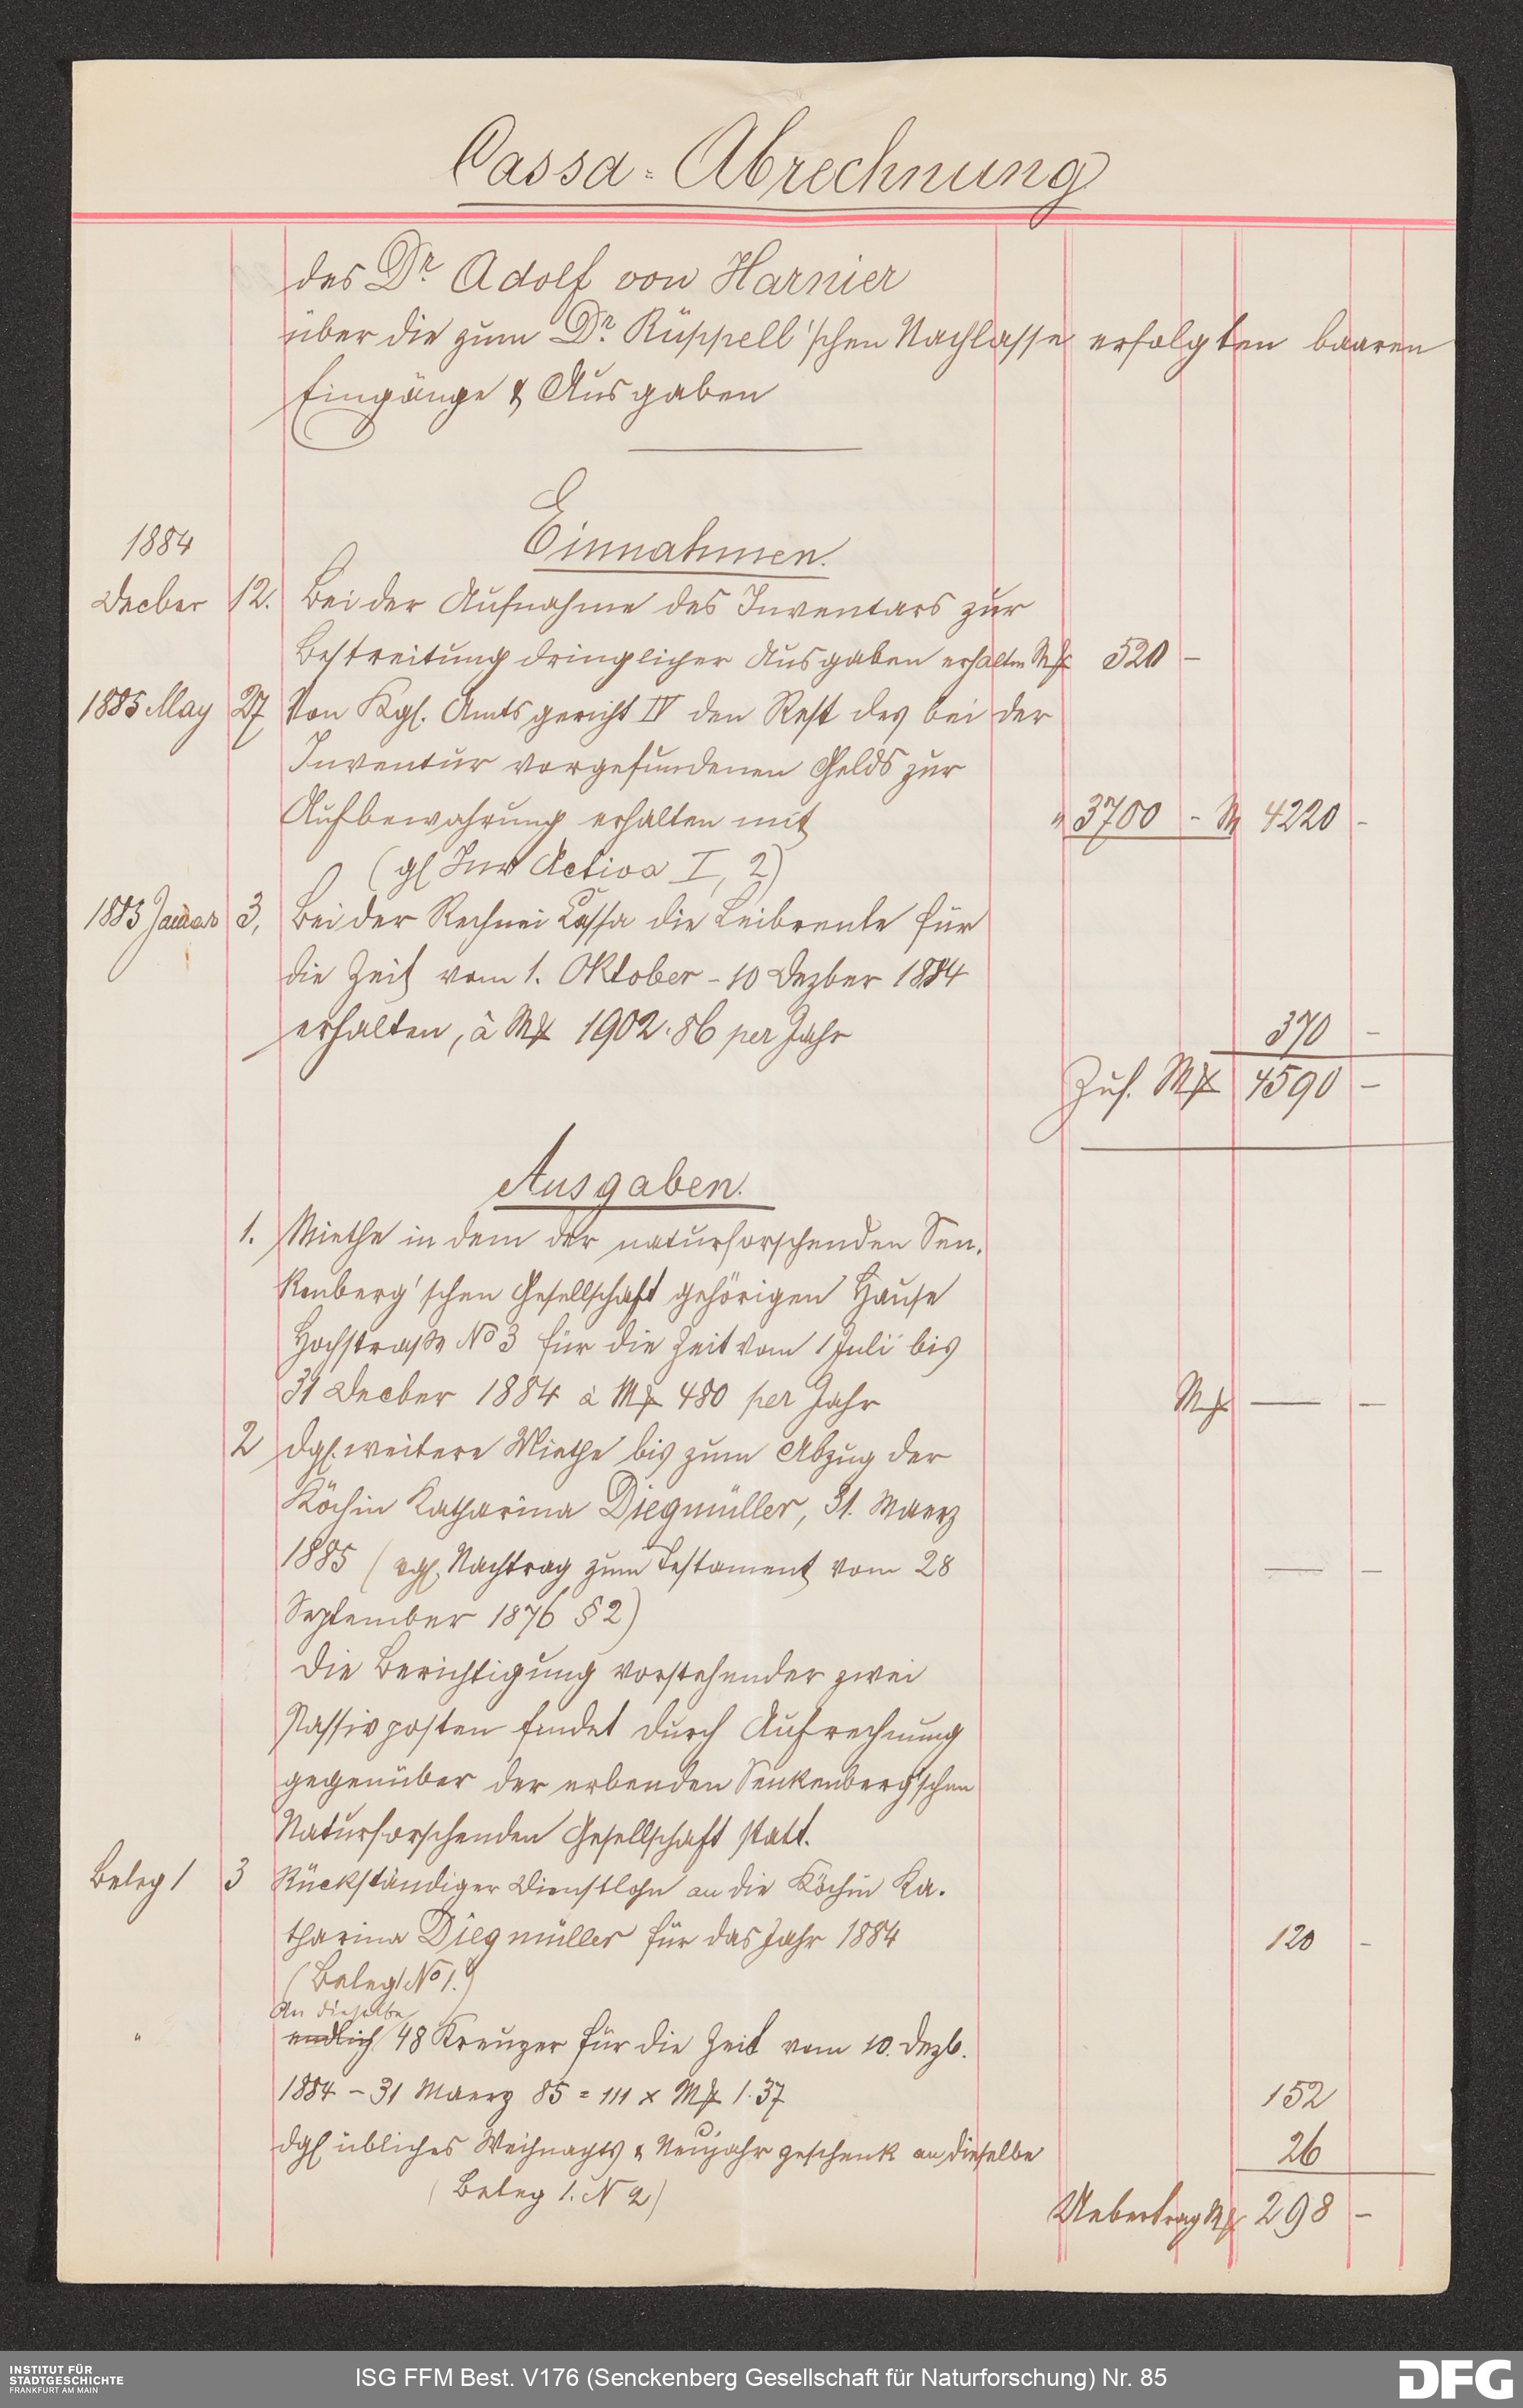 Cassa-Abrechnung
des Dr Adolf von Harnier
über die zum Dr. Rüppell'schen Nachlasse erfolgten baaren
Eingänge & Ausgaben
Einnahmen.
1884
Decber 12. Bei der Aufnahme des Inventars zur
Bestreitung dringlicher Ausgaben erhalten Mk 520 –
1885 May 27 Von Kgl. Amtsgericht IV den Rest des bei der
Inventur vorgefundenen Gelds zur
Aufbewahrung erhalten mit " 3700 – M 4220 –
(gl Inv Activa I, 2)
1885 Januar 3, Bei der Rechnei Cassa die Leibrente für
die Zeit vom 1. Oktober – 10 Dezber 1884
erhalten, à Mk 1902.86 per Jahr
370 –
Zus. Mk 4590 –
Ausgaben.
1. Miethe in dem der naturforschenden Sen.
kenberg'schen Gesellschaft gehörigen Hause
Hochstraße No 3 für die Zeit vom 1 Juli bis
31 Decber 1884 à Mk 480 per Jahr Mk — —
2 dgl. weitere Miethe bis zum Abzug der
Köchin Katharina Diegmüller, 31. Maerz
1885 (vgl. Nachtrag zum Testament vom 28 — —
September 1876 § 2)
Die Berichtigung vorstehender zwei
Passivposten findet durch Aufrechnung
gegenüber der erbenden Senkenberg'schen
Naturforschenden Gesellschaft statt.
Beleg 1 3 Rückständiger Dienstlohn an die Köchin Ka.
tharina Diegmüller für das Jahr 1884 120 –
(Beleg 1 No 1.)
An dieselbe
" endlich 48 Kreuzer für die Zeit vom 10. Dezb.
1884 – 31 Maerz 85 = 111 x Mk 1.37 152
dgl übliches Weihnachts & Neujahrgeschenk an dieselbe 26
(Beleg 1. N 2)
Uebertrag Mk 298 –
INSTITUT FÜR
STADTGESCHICHTE
FRANKFURT AM MAIN
ISG FFM Best. V176 (Senckenberg Gesellschaft für Naturforschung) Nr. 85
DFG